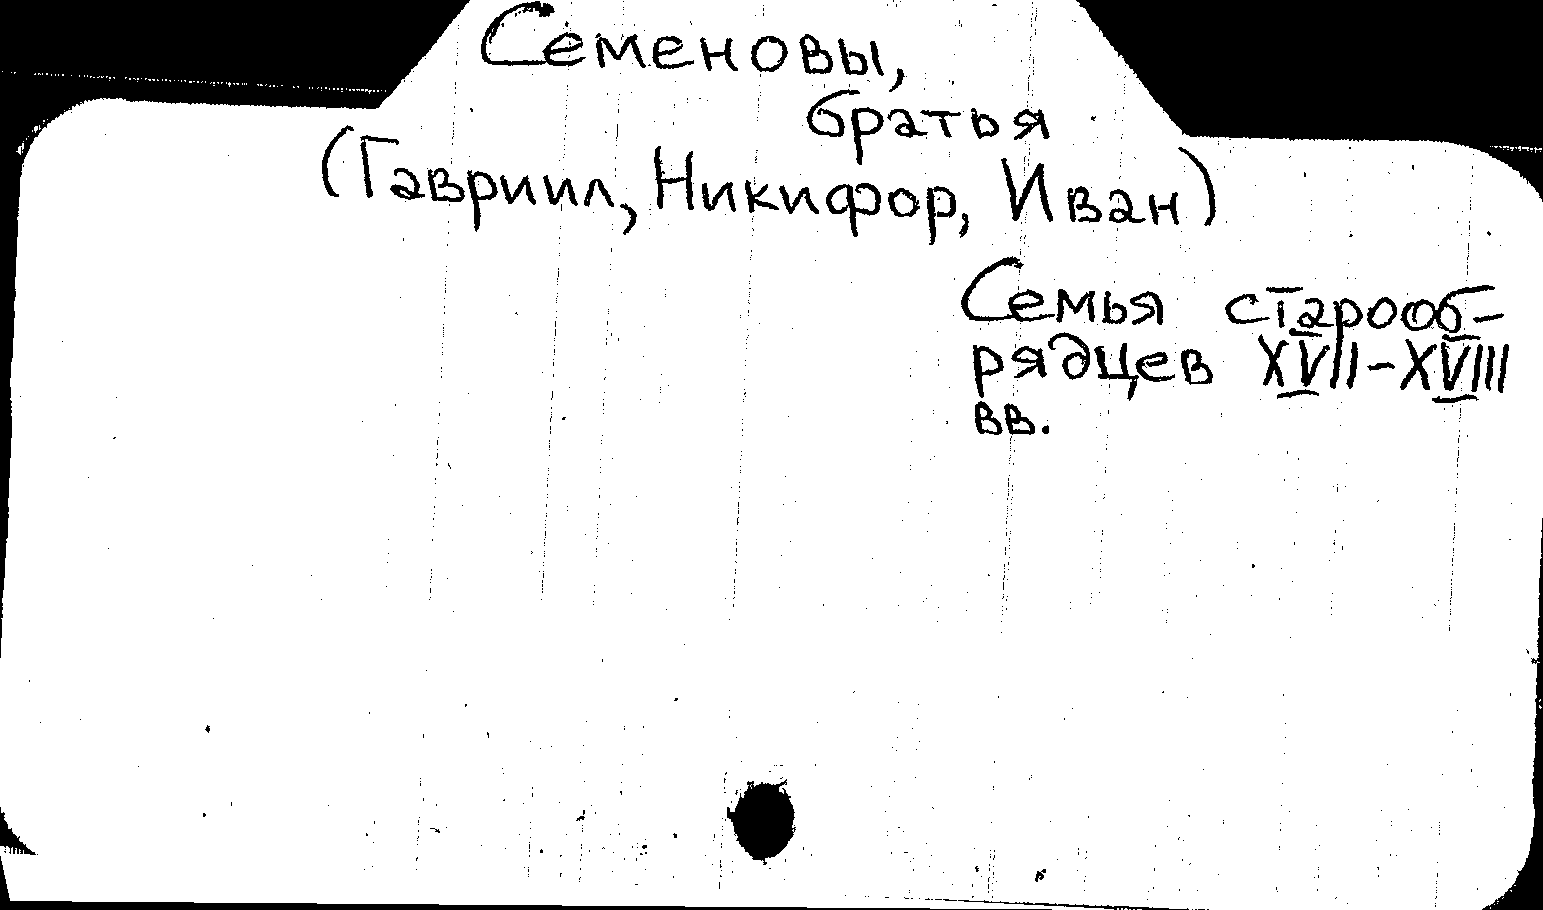 Семеновы,
братья
(Гавриил, Никифор, Иван)
Семья старооб-
рядцев XVII-XVIII
вв.